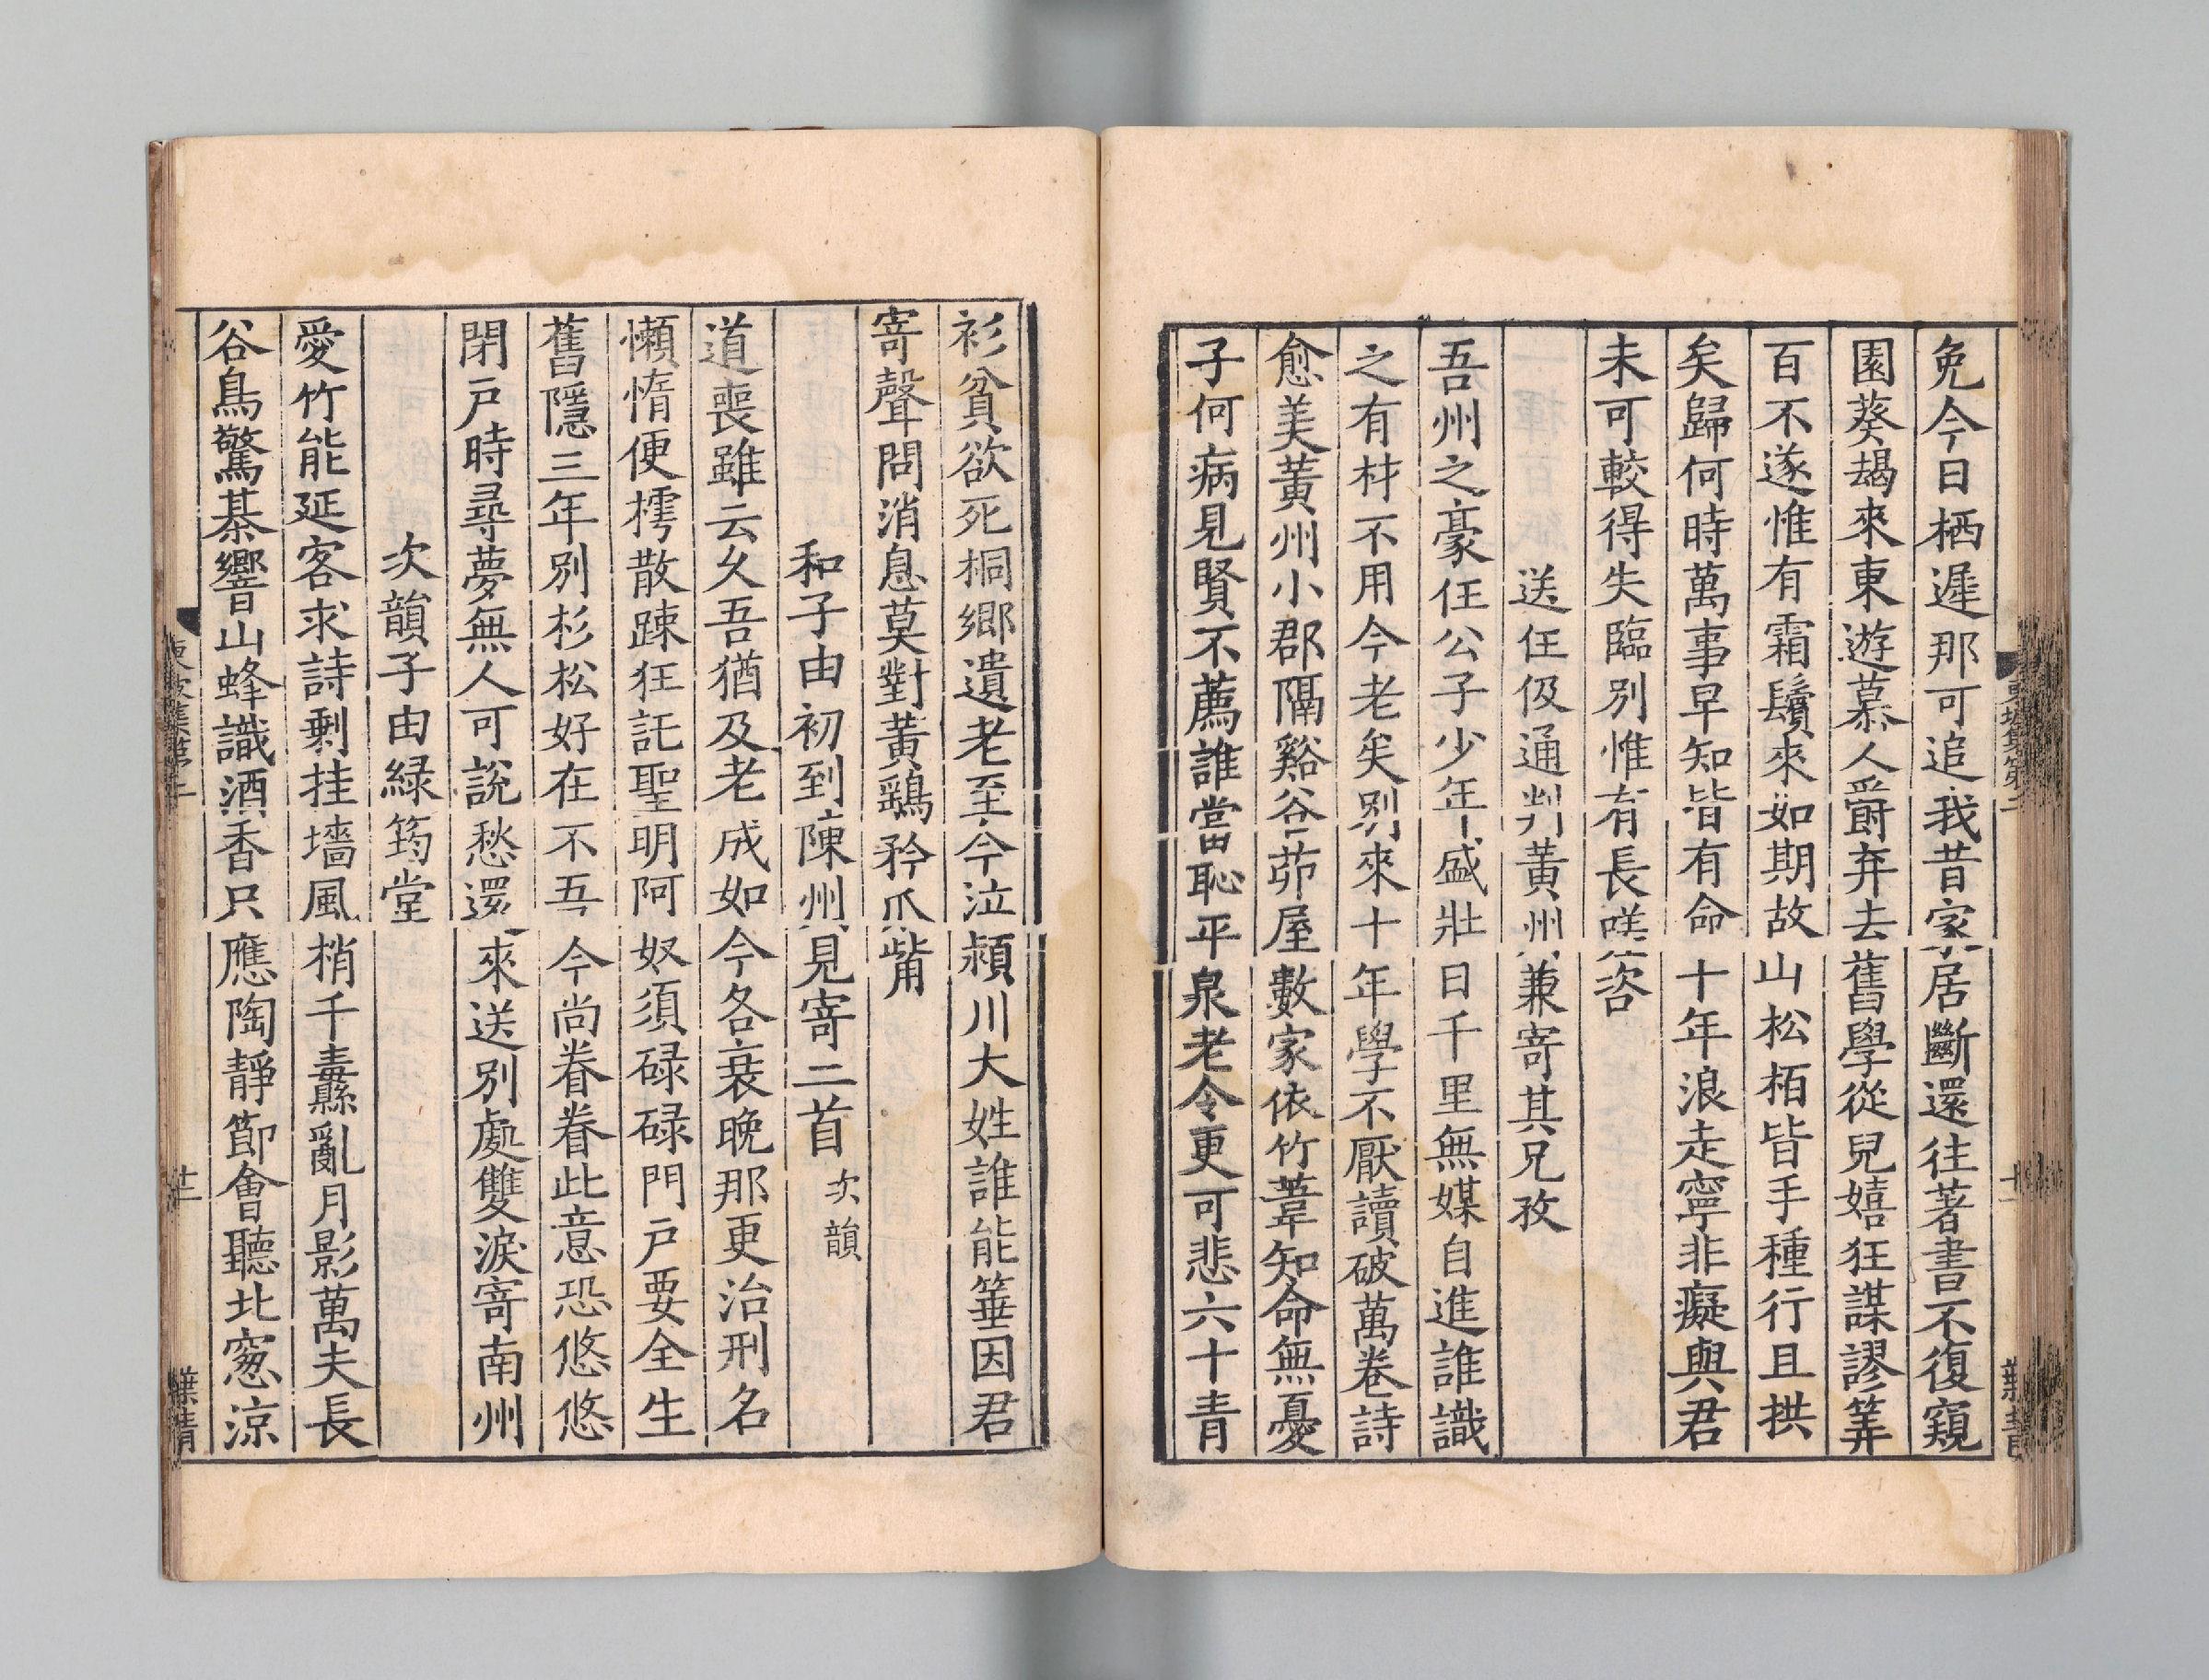 免今日栖遲那可追我昔家居斷還往著書不復窺
園葵朅來東遊慕人爵弃去舊學從兒嬉狂謀謬筭
百不遂惟有霜鬢來如期故山松栢皆手種行且拱
矣歸何時萬事早知皆有命十年浪走寧非癡與君
未可較得失臨別惟有長嗟咨
送任伋通判黃州兼寄其兄孜
吾州之豪任公子少年盛壯日千里無媒自進誰識
之有材不用今老矣別來十年學不厭讀破萬卷詩
愈美黃州小郡隔谿谷茆屋數家依竹葦知命無憂
子何病見賢不薦誰當恥平泉老令更可悲六十青
衫貧欲死桐鄉遺老至今泣潁川大姓誰能箠因君
寄聲問消息莫對黃鷂矜爪觜
和子由初到陳州見寄二首次韻
道喪雖云久吾猶及老成如今各衰晚那更治刑名
懶惰便樗散踈狂託聖明阿奴須碌碌門戶要全生
舊隱三年別杉松好在不吾今尚眷眷此意恐悠悠
閉戶時尋夢無人可說愁還來送別處雙淚寄南州
次韻子由綠筠堂
愛竹能延客求詩剩挂墻風梢千纛亂月影萬夫長
谷鳥驚棊響山蜂識酒香只應陶靜節會聽北窓涼
東坡集第二
十二
葉青